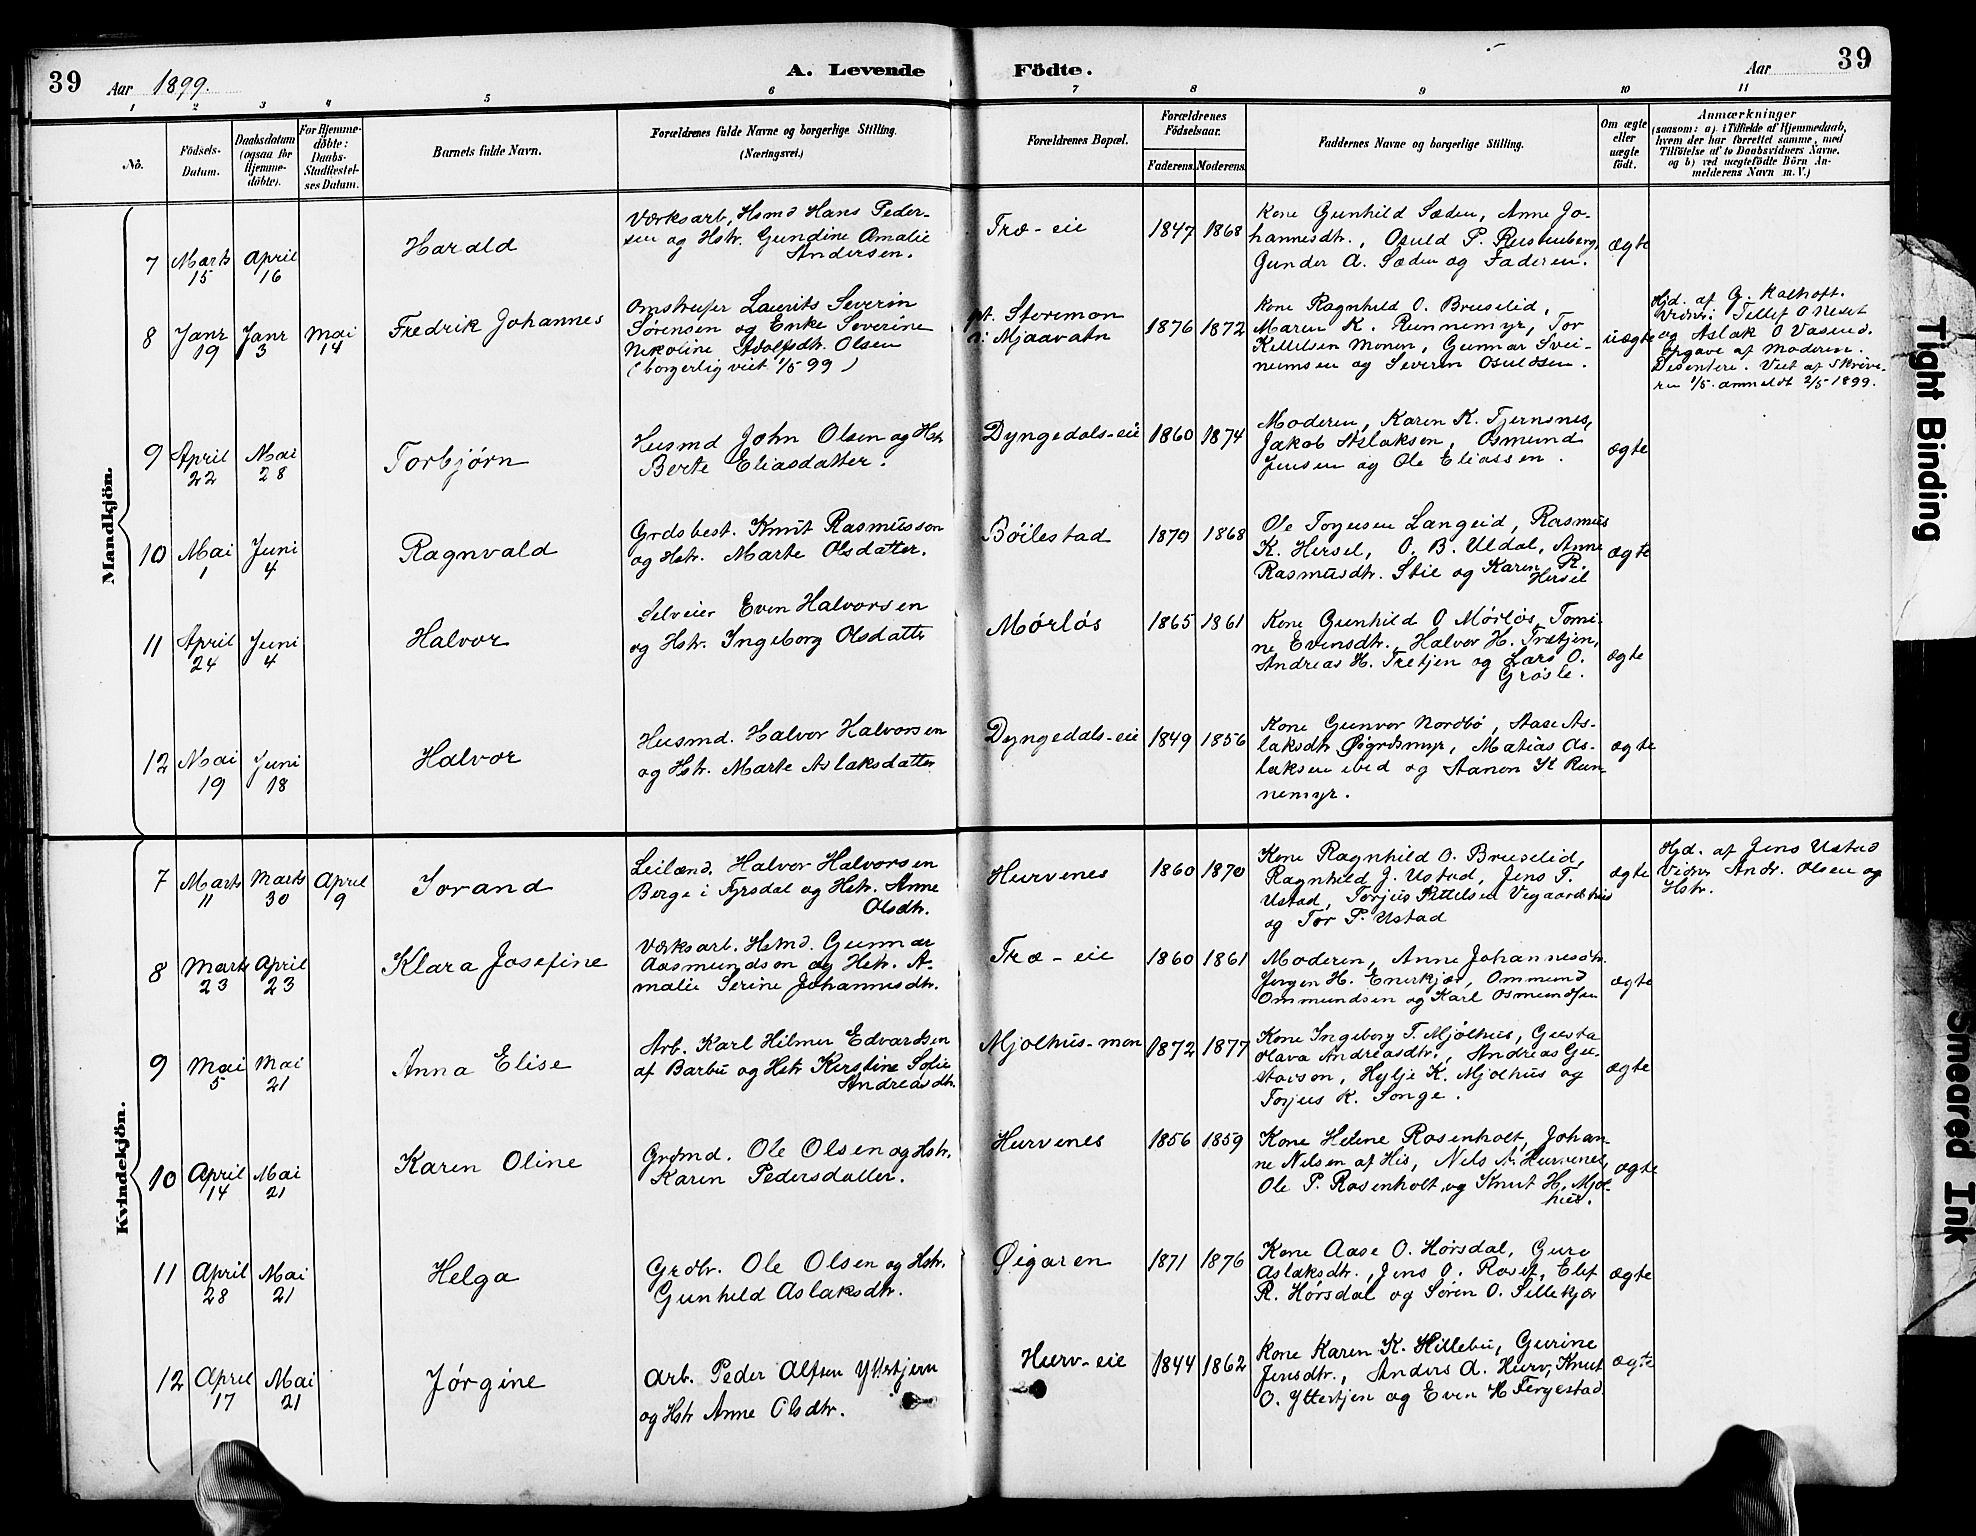 39
Aar 1899.
A. Levende Födte.
Aar
39
1 2 3 4 5 6 7 8 9 10 11
No.
Födsels-Datum.
Daabsdatum (ogsaa for Hjemme-döbte).
For Hjemme-döbte: Daabs-Stadfæstel-ses Datum.
Barnets fulde Navn.
Forældrenes fulde Navne og borgerlige Stilling.
(Næringsvei.)
Forældrenes Bopæl.
Forældrenes Födselsaar.
Faderens. Moderens.
Faddernes Navne og borgerlige Stilling.
Om ægte eller uægte født.
Anmærkninger
(saasom: a) i Tilfælde af Hjemmedaab,
hvem der har forrettet samme, med
Tilföielse af to Daabsvidners Navne,
og b) ved uægtefödte Börn An-
melderens Navn m. V.)
Mandkjön.
7 Marts 15 April 16 Harald
Værksarb, Hsmd Hans Peder-
sen og Hstr. Gundine Amalie
Andersen.
Træ-eie 1847 1868
Kone Gunhild Sæden, Anne Jo-
hannesdtr., Osuld P. Rustenberg,
Gunder A. Sæden og Faderen.
ægte
8 Janr 19 Janr 3 Mai 14 Fredrik Johannes
Omstreifer Laurits Severin
Sørensen og Enke Severine
Nikoline Adolfsdtr. Olsen
(borgerlig viet 1/5 99)
pt. Storemon
i Mjaavatn 1876 1872
Kone Ragnhild O. Bruselid,
Maren K. Runnemyr, Tor
Kittelsen Monen, Gunnar Svei-
numsen og Severin Osuldsen.
uægte
Hjd. af G. Kalhoft.
Vidner: Tellef O Neset
og Aslak O Vasend.
Opgave af Moderen.
Desentere. Viet af Skrive-
ren 1/5. anmeldt 2/5 1899.
9 April 22 Mai 28 Torbjørn
Husmd John Olsen og Hstr
Berte Eliasdatter.
Dyngedals-eie 1860 1874
Moderen, Karen K. Tjernsnes,
Jakob Aslaksen, Osmund
Jensen og Ole Eliassen.
ægte
10 Mai 1 Juni 4 Ragnvald
Grdsbest. Knut Rasmusson
og Hstr. Marte Olsdatter.
Bøilestad 1870 1868
Ole Torjusen Langeid, Rasmus
K. Hersel, O. B. Uldal, Anne
Rasmusdtr. Stie og Karen R.
Hersel
ægte
11 April 24 Juni 4 Halvor
Selveier Even Halvorsen
og Hstr. Ingeborg Olsdatter
Mørløs 1865 1861
Kone Gunhild O Mørløs, Tomi-
ne Evensdtr., Halvor H. Trætjen,
Andreas H. Tretjen og Lars O.
Grøsle.
ægte
12 Mai 19 Juni 18 Halvor
Husmd. Halvor Halvorsen
og Hstr. Marte Aslaksdatter
Dyngedals-eie 1849 1856
Kone Gunvor Nordbø, Aase As-
laksdtr Øigrdsmyr, Matias As-
laksen ibid og Aanon K Run-
nemyr.
ægte
Kvindekjön.
7 Marts 11 Marts 30 April 9 Jorand
Leilænd. Halvor Halvorsen
Berge i Fyrsdal og Hstr. Anne
Olsdtr.
Hurvenes 1860 1870
Kone Ragnhild O. Bruselid,
Ragnhild J. Ustad, Jens T.
Ustad, Torjus Kittelsen Vegaardshus
og Tor P. Ustad
ægte
Hjd. af Jens Ustad
Vidnr Andr. Olsen og
Hstr.
8 Marts 23 April 23 Klara Josefine
Værksarb. Hsmd. Gunnar
Aasmundson og Hstr. A-
malie Serine Johannesdtr.
Træ-eie 1860 1861
Moderen, Anne Johannesdtr.
Jørgen H. Enerkjær, Ommund
Ommundsen og Karl Osmundsen
ægte
9 Mai 5 Mai 21 Anna Elise
Arb. Karl Hilmer Edvardsen
af Barbu og Hstr Kirstine Sofie
Andreasdtr.
Mjolhus-mon 1872 1877
Kone Ingeborg T. Mjølhus, Gusta
Olava Andreasdtr., Andreas Gu-
stavson, Hylje K. Mjolhus og
Torjus K. Songe.
ægte
10 April 14 Mai 21 Karen Oline
Grdmd. Ole Olsen og Hstr.
Karen Pedersdatter.
Hurvenes 1856 1859
Kone Helene Rosenholt, Johan-
ne Nilsen af His, Nels A. Hurvenes,
Ole P. Rosenholt og Knut H. Mjol-
hus.
ægte
11 April 28 Mai 21 Helga
Grdbr. Ole Olsen og Hstr.
Gunhild Aslaksdtr.
Øigaren 1871 1876
Kone Aase O. Hørsdal, Guro
Aslaksdtr., Jens O. Roset, Elef
R. Hørsdal og Søren O. Sellekjær
ægte
12 April 17 Mai 21 Jørgine
Arb. Peder Alfsen Yttertjern
og Hstr Anne Olsdtr.
Hurv-eie 1844 1862
Kone Karen K. Hillebu, Gurine
Jensdtr., Anders A. Hurv, Knut
O. Yttertjen og Even H Fergestad
ægte
Tight Binding
Smeared Ink